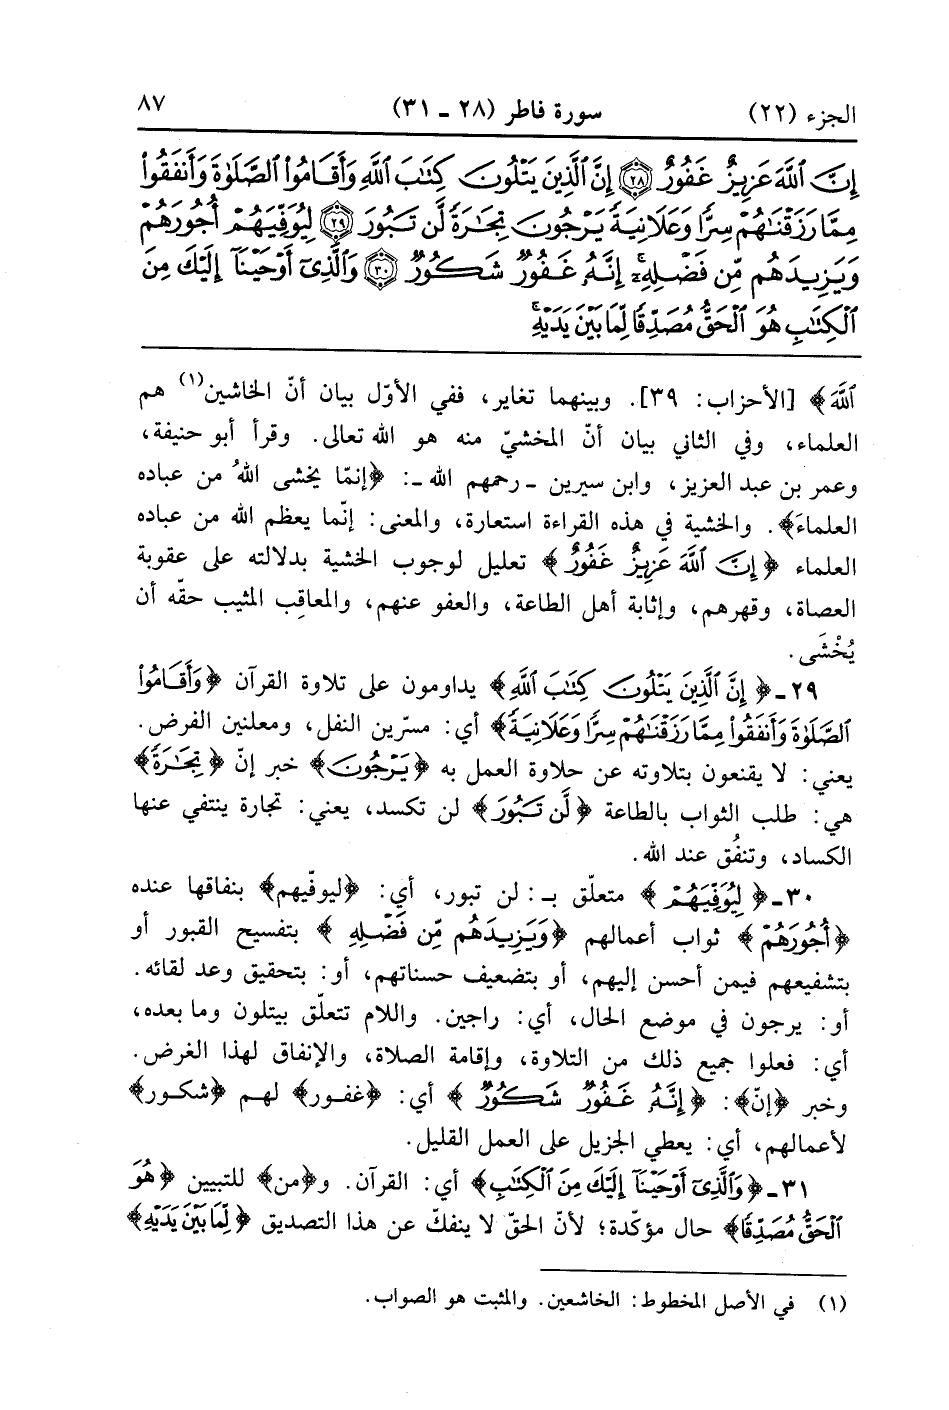 الجزء (٢٢) سورة فاطر (٢٨ ـ ٣١) ٨٧
إِنَّ ٱللَّهَ عَزِيزٌ غَفُورٌ ﴿٢٨﴾ إِنَّ ٱلَّذِينَ يَتْلُونَ كِتَٰبَ ٱللَّهِ وَأَقَامُوا۟ ٱلصَّلَوٰةَ وَأَنفَقُوا۟
مِمَّا رَزَقْنَٰهُمْ سِرًّا وَعَلَانِيَةً يَرْجُونَ تِجَٰرَةً لَّن تَبُورَ ﴿٢٩﴾ لِيُوَفِّيَهُمْ أُجُورَهُمْ
وَيَزِيدَهُم مِّن فَضْلِهِۦٓ إِنَّهُۥ غَفُورٌ شَكُورٌ ﴿٣٠﴾ وَٱلَّذِىٓ أَوْحَيْنَآ إِلَيْكَ مِنَ
ٱلْكِتَٰبِ هُوَ ٱلْحَقُّ مُصَدِّقًا لِّمَا بَيْنَ يَدَيْهِۗ
ٱللَّهَ﴾ [الأحزاب: ٣٩]. وبينهما تغاير، ففي الأوّل بيان أنّ الخاشين(١) هم
العلماء، وفي الثاني بيان أنّ المخشيّ منه هو الله تعالى. وقرأ أبو حنيفة،
وعمر بن عبد العزيز، وابن سيرين ـ رحمهم الله ـ: ﴿إنمّا يخشى اللهُ من عباده
العلماءَ﴾. والخشية في هذه القراءة استعارة، والمعنى: إنّما يعظم الله من عباده
العلماء ﴿إِنَّ ٱللَّهَ عَزِيزٌ غَفُورٌ﴾ تعليل لوجوب الخشية بدلالته على عقوبة
العصاة، وقهرهم، وإثابة أهل الطاعة، والعفو عنهم، والمعاقِب المثيب حقّه أن
يُخْشَى.
٢٩ ـ ﴿إِنَّ ٱلَّذِينَ يَتْلُونَ كِتَٰبَ ٱللَّهِ﴾ يداومون على تلاوة القرآن ﴿وَأَقَامُوا۟
ٱلصَّلَوٰةَ وَأَنفَقُوا۟ مِمَّا رَزَقْنَٰهُمْ سِرًّا وَعَلَانِيَةً﴾ أي: مسرّين النفل، ومعلنين الفرض.
يعني: لا يقنعون بتلاوته عن حلاوة العمل به ﴿يَرْجُونَ﴾ خبر إنّ ﴿تِجَٰرَةً﴾
هي: طلب الثواب بالطاعة ﴿لَّن تَبُورَ﴾ لن تكسد، يعني: تجارة ينتفي عنها
الكساد، وتنفُق عند الله.
٣٠ ـ ﴿لِيُوَفِّيَهُمْ﴾ متعلّق بـ: لن تبور، أي: ﴿ليوفّيهم﴾ بنفاقها عنده
﴿أُجُورَهُمْ﴾ ثواب أعمالهم ﴿وَيَزِيدَهُم مِّن فَضْلِهِ﴾ بتفسيح القبور أو
بتشفيعهم فيمن أحسن إليهم، أو بتضعيف حسناتهم، أو: بتحقيق وعد لقائه.
أو: يرجون في موضع الحال، أي: راجين. واللام تتعلّق بيتلون وما بعده،
أي: فعلوا جميع ذلك من التلاوة، وإقامة الصلاة، والإنفاق لهذا الغرض.
وخبر ﴿إنّ﴾: ﴿إِنَّهُۥ غَفُورٌ شَكُورٌ﴾ أي: ﴿غفور﴾ لهم ﴿شكور﴾
لأعمالهم، أي: يعطي الجزيل على العمل القليل.
٣١ ـ ﴿وَٱلَّذِىٓ أَوْحَيْنَآ إِلَيْكَ مِنَ ٱلْكِتَٰبِ﴾ أي: القرآن. و﴿من﴾ للتبيين ﴿هُوَ
ٱلْحَقُّ مُصَدِّقًا﴾ حال مؤكّدة؛ لأنّ الحقّ لا ينفكّ عن هذا التصديق ﴿لِّمَا بَيْنَ يَدَيْهِ﴾
(١) في الأصل المخطوط: الخاشعين. والمثبت هو الصواب.